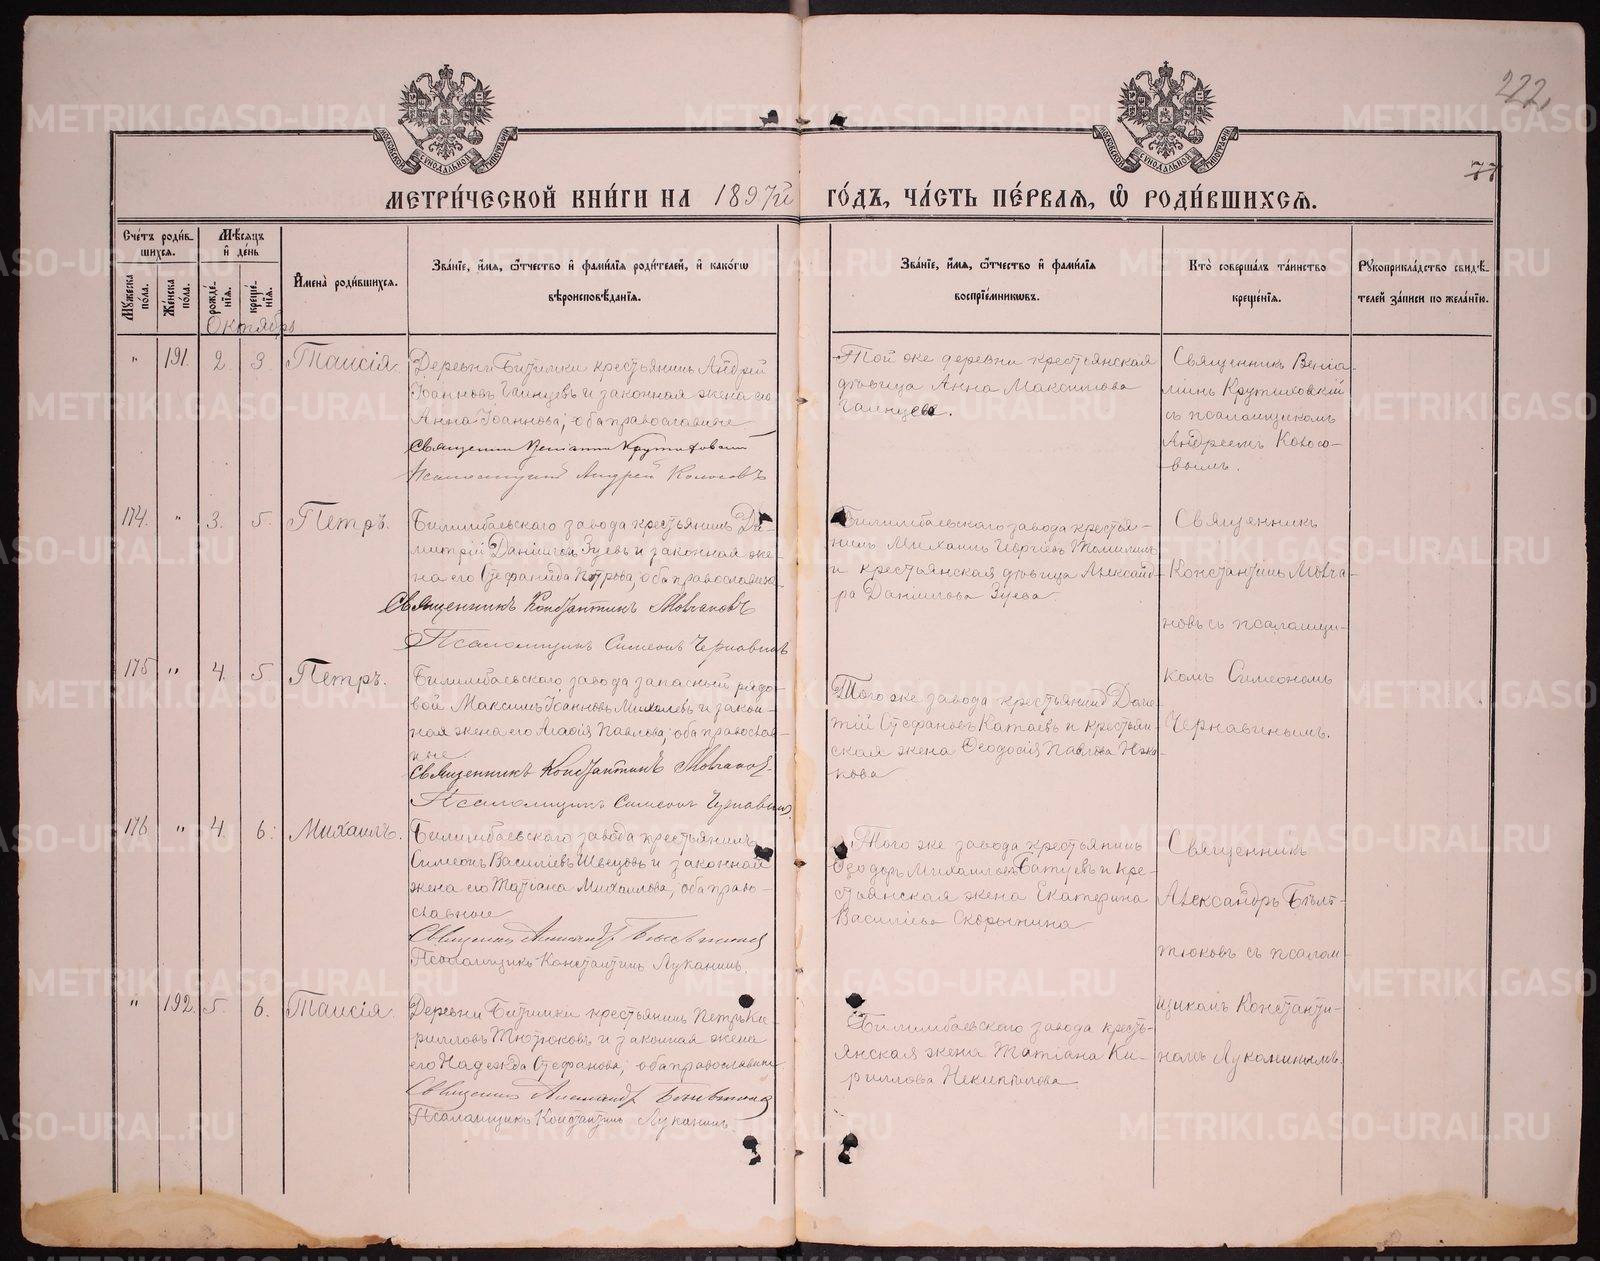 222.
77
МЕТРИ́ЧЕСКОЙ КНИ́ГИ НА 1897й ГО́ДЪ, ЧА́СТЬ ПЕ́РВАѦ, Ѿ РОДИ́ВШИХСѦ.
Сче́тъ роди́в-
шихсѧ.
Мѣ́сѧцъ
и̑ де́нь
Мꙋ́жеска по́ла.
Же́нска по́ла.
рожде́-
нїѧ.
креще́-
нїѧ.
И̑мена̀ роди́вшихсѧ.
Зва́нїе, и̑́мѧ, ѻ҆́тчество и̑ фами́лїѧ роди́телей, и̑ како́гѡ
вѣроисповѣ́данїѧ.
Зва́нїе, и̑́мѧ, ѻ҆́тчество и̑ фами́лїѧ
воспрїе́мникѡвъ.
Кто̀ соверша́лъ та́инство
креще́нїѧ.
Рꙋкоприкла́дство свидѣ́-
телей за́писи по жела́нїю.
Октябрь
" 191. 2. 3. Таисія.
Деревни Битимки крестьянинъ Андрей
Іоанновъ Галицевъ и законная жена его
Анна Іоаннова; оба православные
Священникъ Веніаминъ Крутиховскій
Псаломщикъ Андрей Колосовъ
Той же деревни крестьянская
дѣвица Анна Максимова
Галицева.
Священникъ Веніа-
минъ Крутиховскій
съ псаломщикомъ
Андреемъ Колосо-
вымъ.
174. " 3. 5. Петръ.
Билимбаевскаго завода крестьянинъ Ди-
митрій Даніиловъ Зуевъ и законная же-
на его Стефанида Петрова; оба православные
Священникъ Константинъ Мовчановъ
Псаломщикъ Симеонъ Чернавинъ
Билимбаевскаго завода крестья-
нинъ Михаилъ Георгіевъ Томилинъ
и крестьянская дѣвица Александ-
ра Даниилова Зуева
Священникъ
Константинъ Мовча-
новъ съ псаломщи-
комъ Симеономъ
Чернавинымъ.
175 " 4. 5. Петръ.
Билимбаевскаго завода запасный рядо-
вой Максимъ Іоанновъ Михалевъ и закон-
ная жена его Агафія Павлова; оба православ-
ные
Священникъ Константинъ Мовчановъ
Псаломщикъ Симеонъ Чернавинъ
Того же завода крестьянинъ
Стефановъ Катаевъ и крестьян-
ская жена Ѳеодосія Павлова
176 " 4. 6. Михаилъ.
Билимбаевскаго завода крестьянинъ
Симеонъ Василіевъ Швецовъ и законная
жена его Татіана Михаилова, оба право-
славные
Священникъ Александръ Бѣлтюковъ
Псаломщикъ Константинъ Луканинъ.
Того же завода крестьянинъ
Ѳеодоръ Михаиловъ Батуевъ и кре-
стьянская жена Екатерина
Василіева Скорынина
Священникъ
Александръ Бѣлт-
тюковъ съ псалом-
щикомъ Константи-
номъ Луканинымъ.
" 192. 5. 6. Таисія.
Деревни Битимки крестьянинъ Петръ Ки-
рилловъ Тютюковъ и законная жена
его Надежда Стефанова; оба православные
Священникъ Александръ Бѣлтюковъ
Псаломщикъ Константинъ Луканинъ.
Билимбаевскаго завода кресть-
янская жена Татіана Ки-
риллова Некипѣлова
METRIKI.GASO-URAL.RU